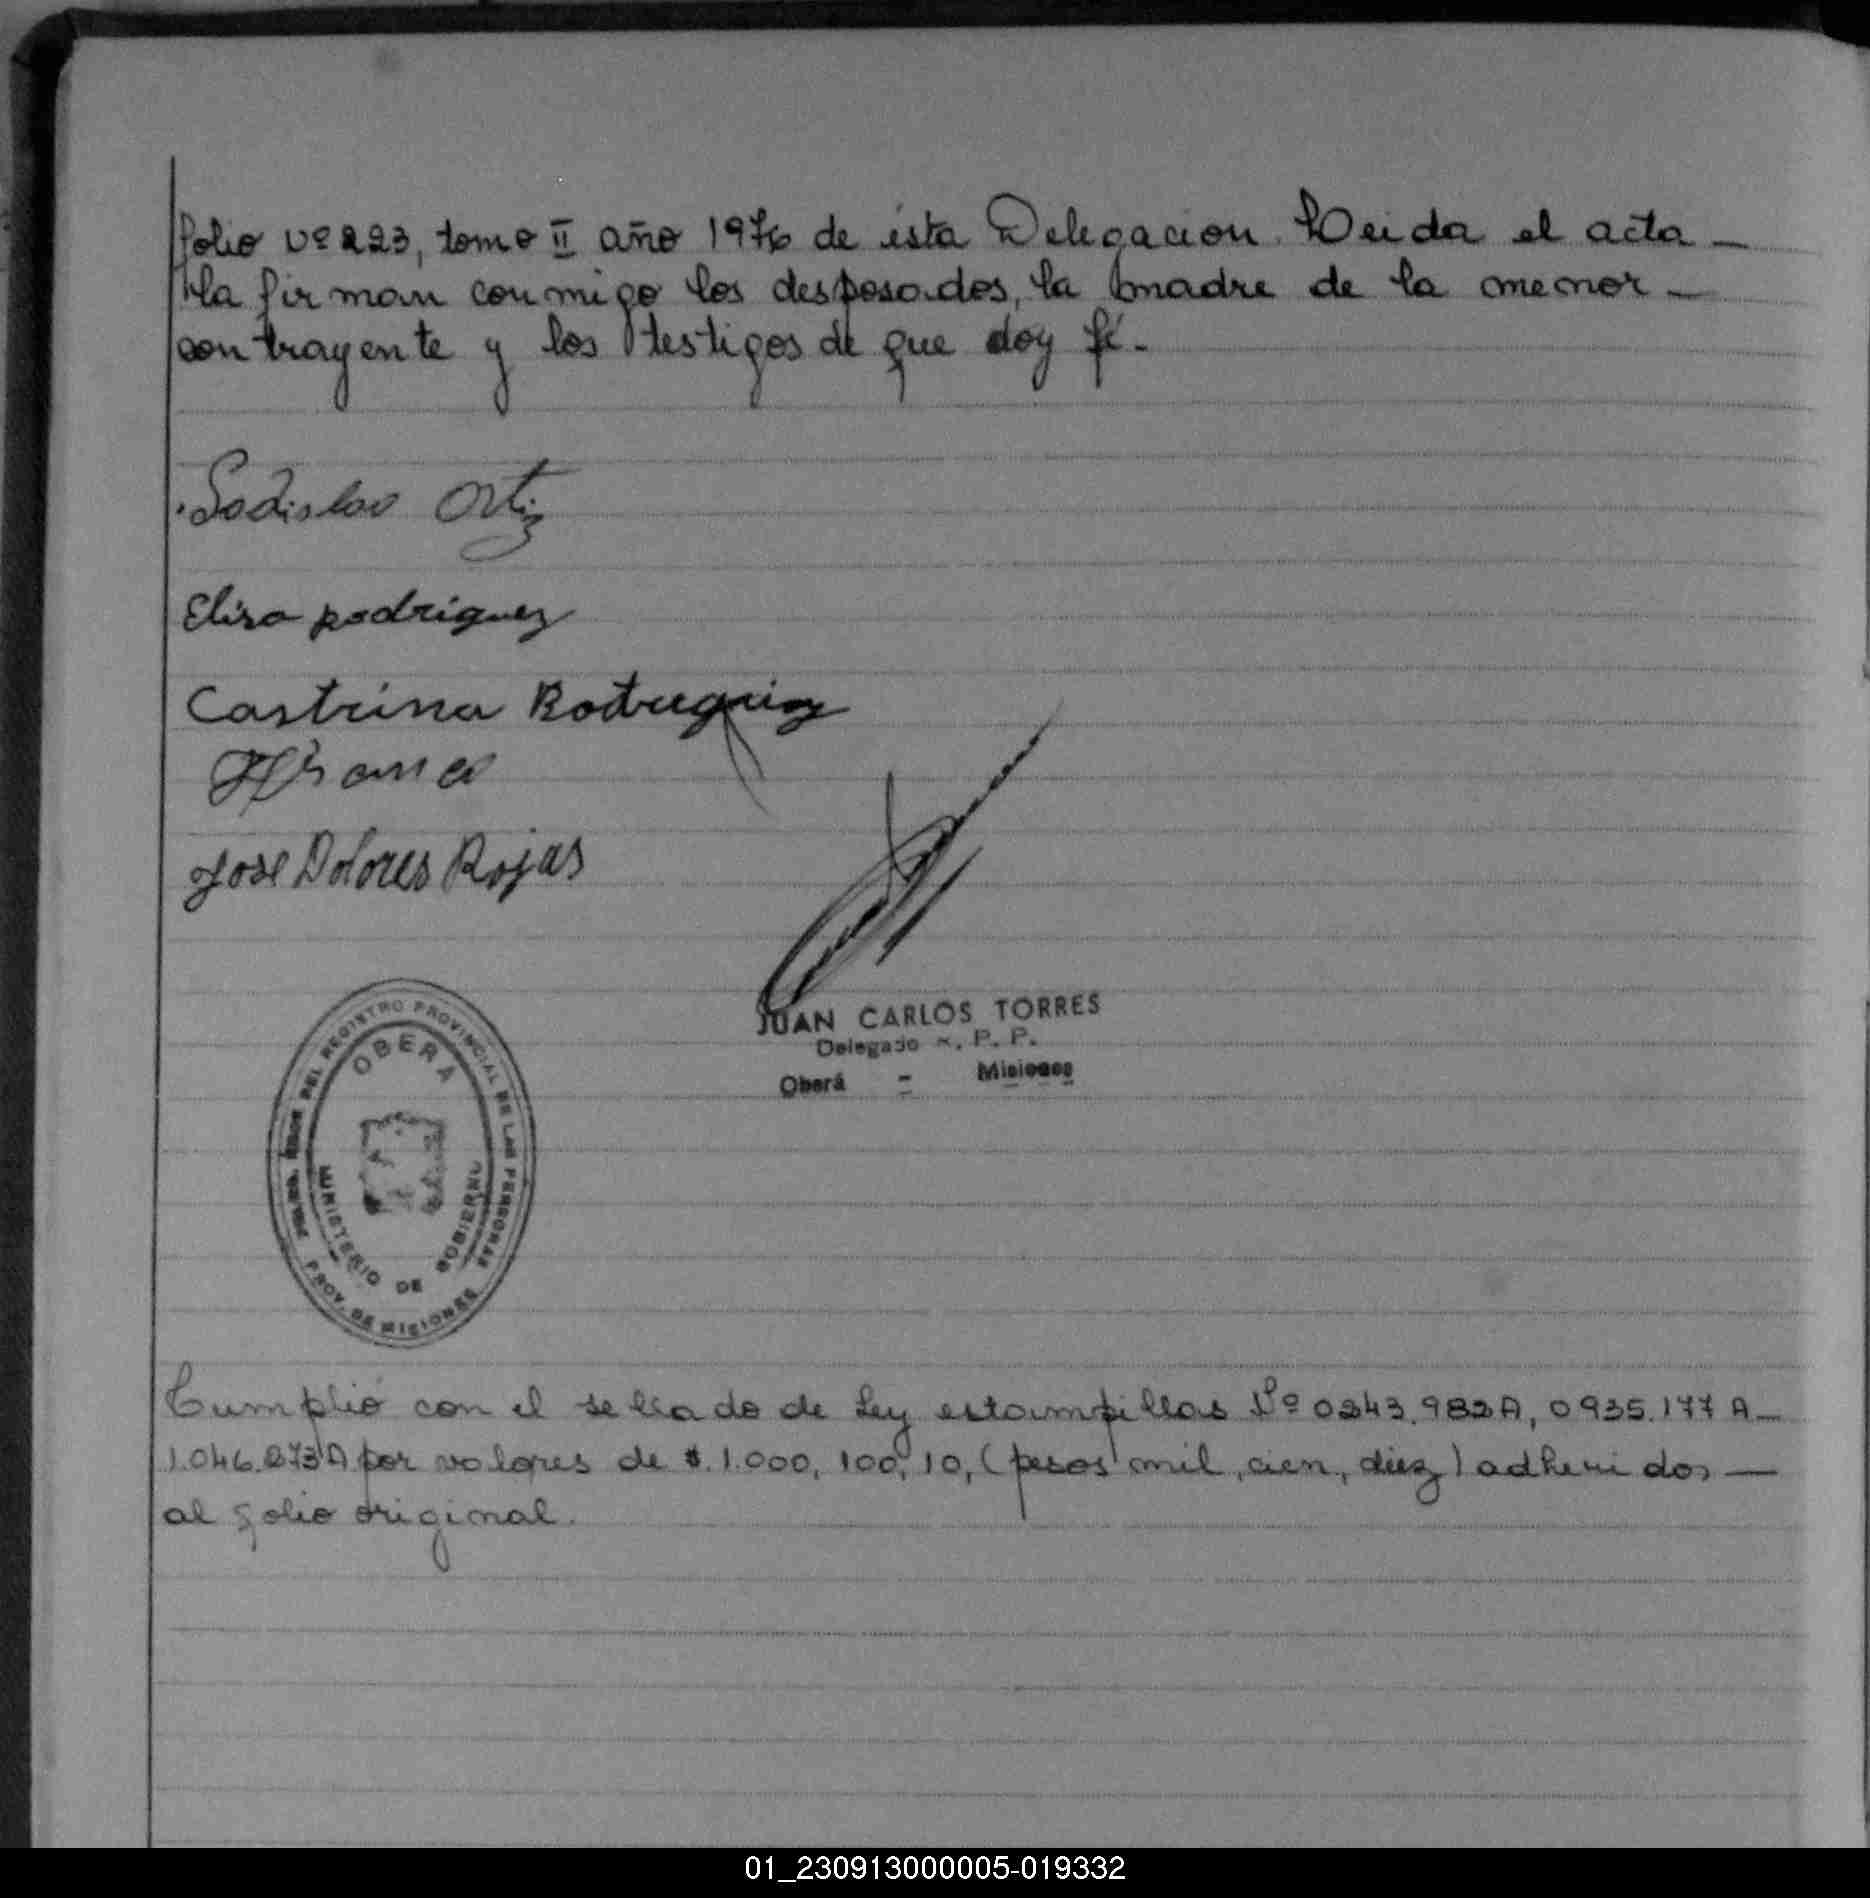 folio Nº 223, tomo II año 1976 de ésta Delegacion. Leida el acta
la firman conmigo los desposados, la madre de la menor
contrayente y los testigos de que doy fé.
Ladislao Ortiz
Elisa rodriguez
Castrina Rodriguez
José Dolores Rojas
JUAN CARLOS TORRES
Delegado R. P. P.
Oberá - Misiones
DEL REGISTRO PROVINCIAL DE LAS PERSONAS
OBERA
MINISTERIO DE GOBIERNO
PROV. DE MISIONES
Cumplió con el sellado de Ley estampillas Nº 0243.982A, 0935.177 A
1.046.273A por valores de $.1.000, 100, 10, (pesos mil, cien, diez) adheridos
al folio original.
01_230913000005-019332